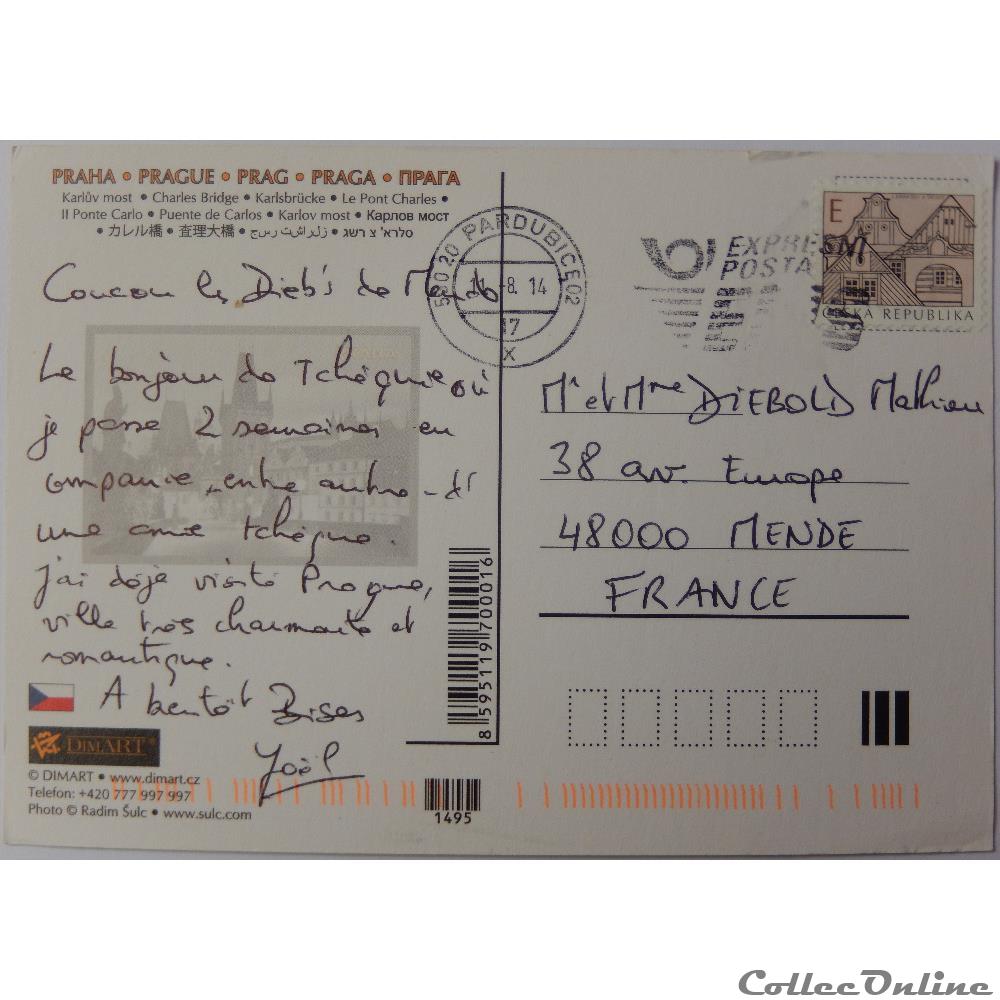 PRAHA • PRAGUE • PRAG • PRAGA • ПРАГА
Karlův most • Charles Bridge • Karlsbrücke • Le Pont Charles •
Il Ponte Carlo • Puente de Carlos • Karlov most • Карлов мост
• カレル橋 • 査理大橋 •
Coucou les Dieb's de Mende
Le bonjour de Tchéquie où
je passe 2 semaines en
compagnie, entre autre - d'
une amie tchèque.
J'ai déjà visité Prague,
ville très charmante et
romantique.
A bientôt Bises
Joël
DIMART
© DIMART • www.dimart.cz
Telefon: +420 777 997 997
Photo © Radim Šulc • www.sulc.com
8 595119 700016
1495
530 20 PARDUBICE 02
-8. 14
17
X
EXPRESNÍ
POSTA
E
ČESKÁ REPUBLIKA
Mr et Mme DIEBOLD Mathieu
38 av. Europe
48000 MENDE
FRANCE
CollecOnline